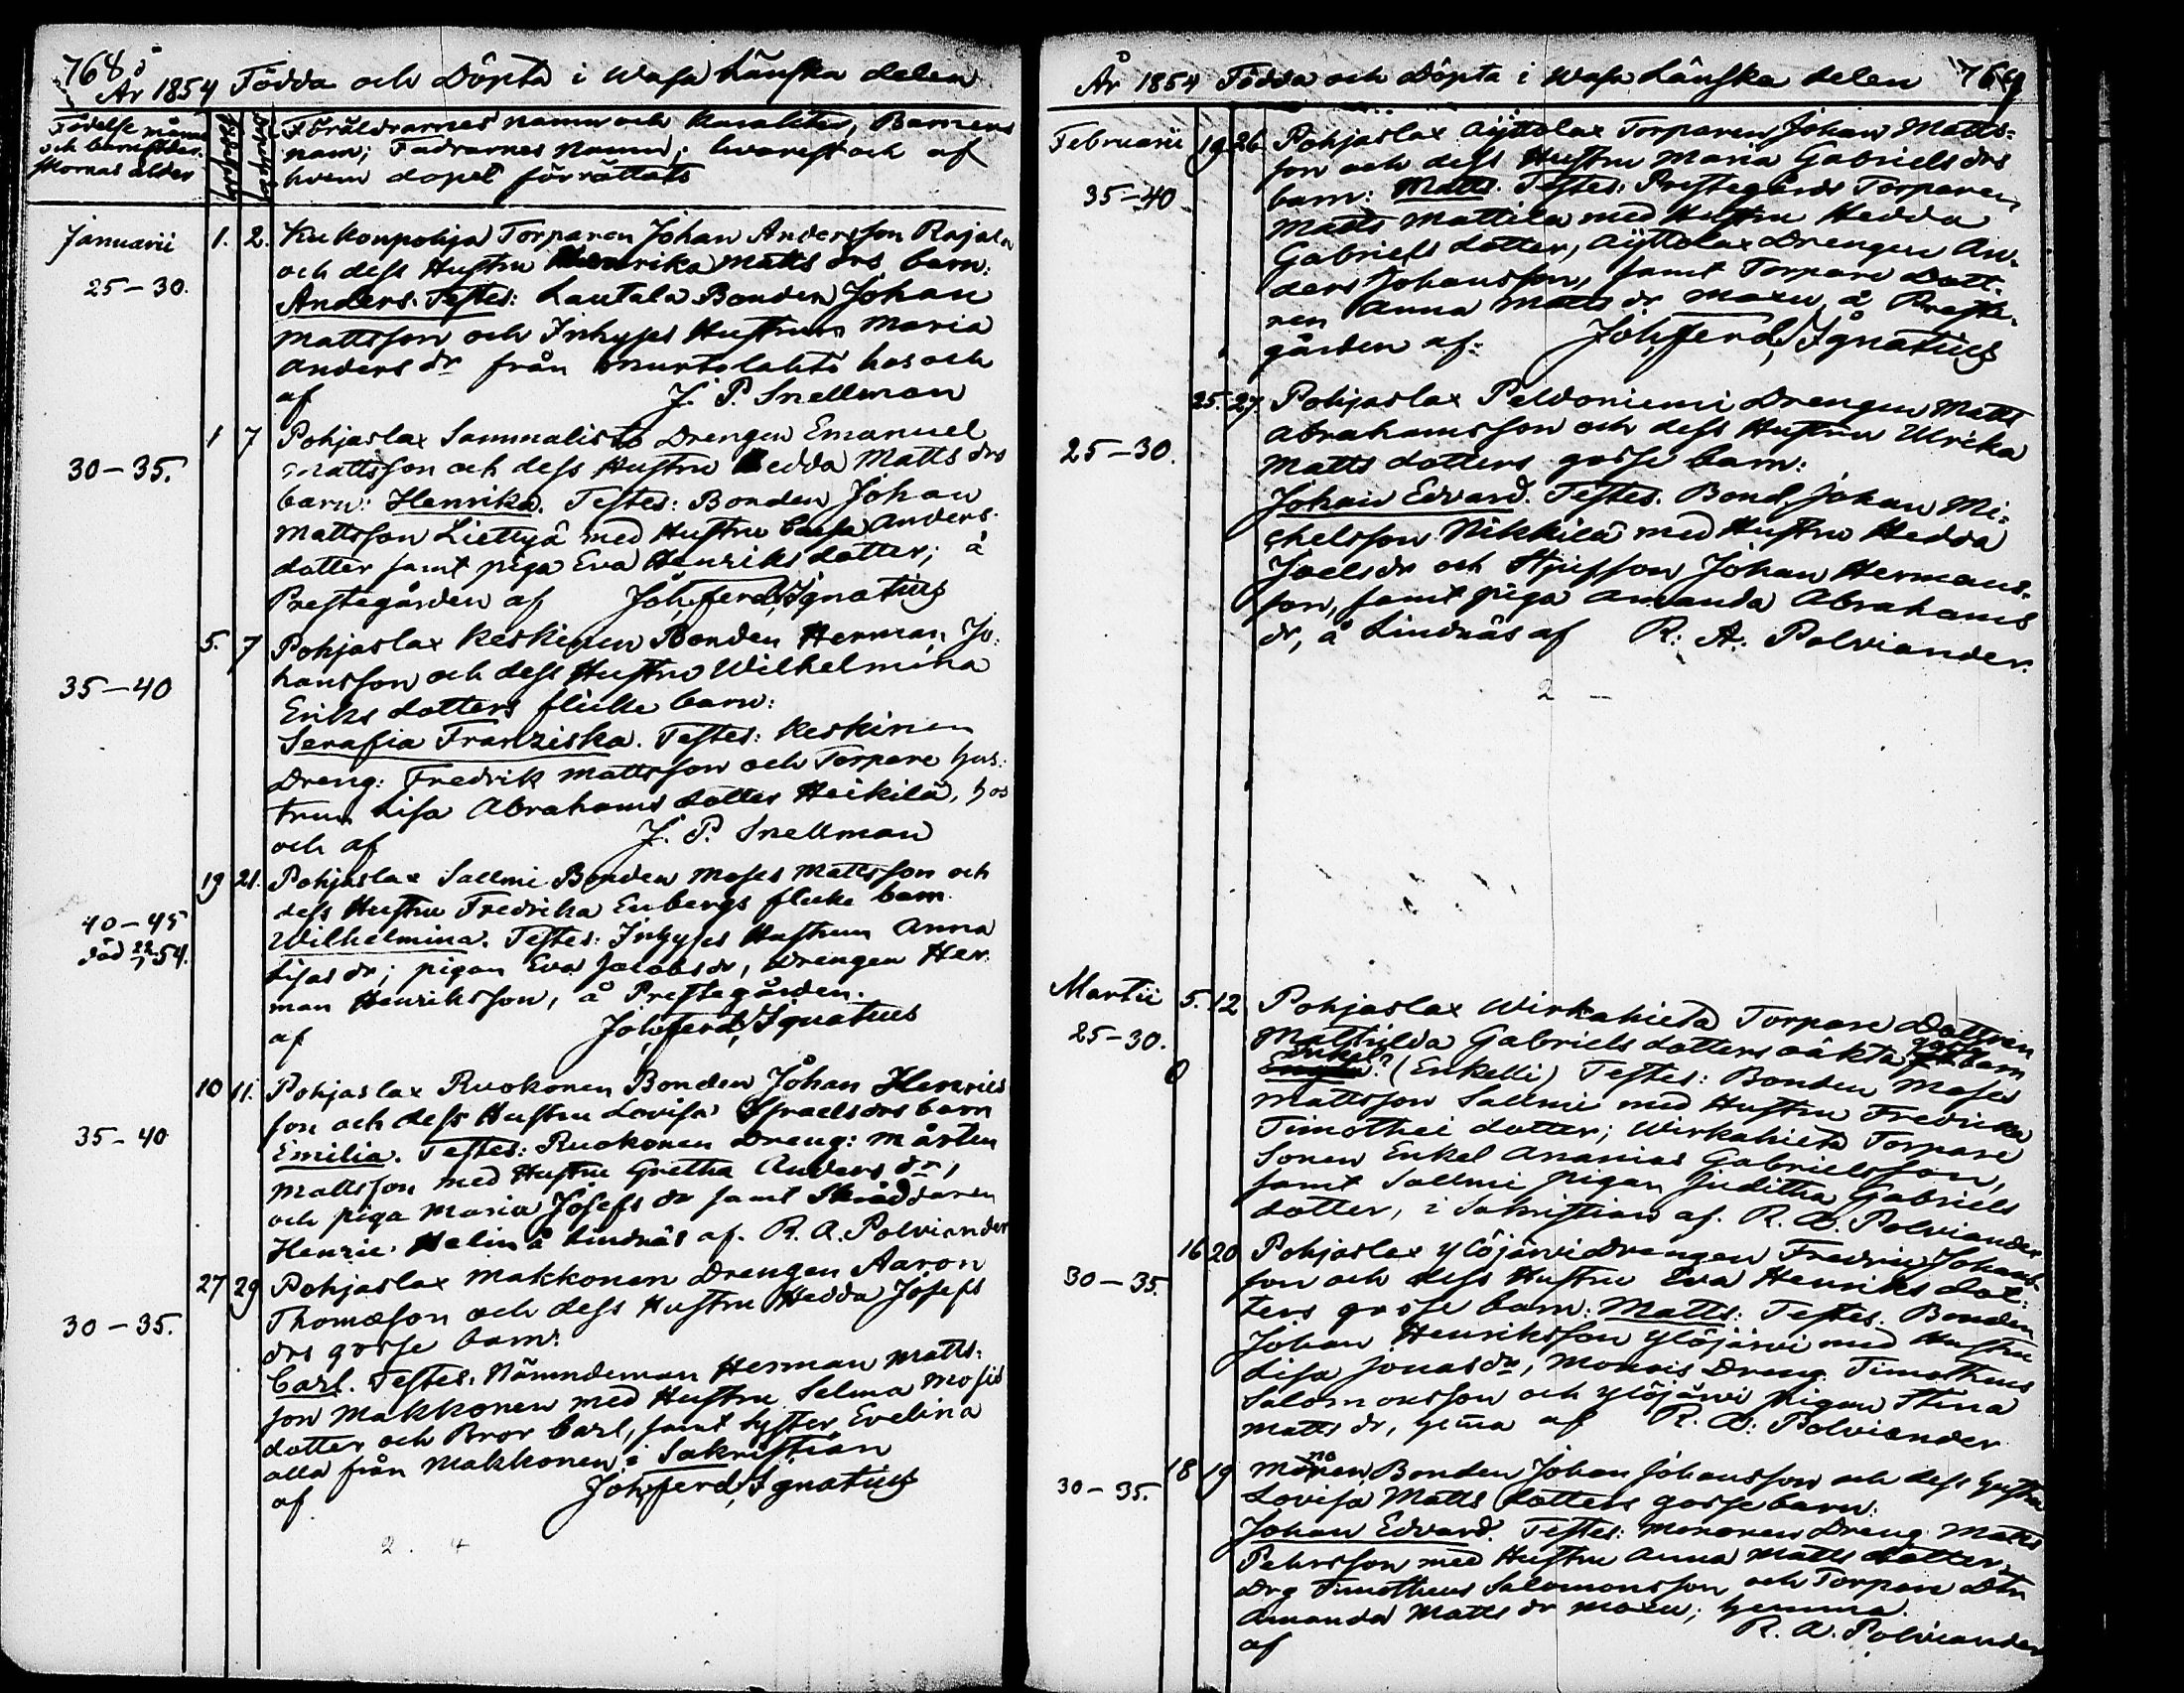 768
År 1854 Födda och Döpta i Wasa Länska delen
Födelse månad
och barnsföder-
skornas ålder
Föräldrarnes namn och karakter, Barnens
namn; Faddrarnes namn; hvarest och af
hvem dopet förrättats
Januarii
25-30.
1. 2. Kukonpohja Torparen Johan Andersson Rajala
och dess Hustru Henrika Matts drs barn:
Anders. Testes: Lautala Bonden Johan
Mattsson och Inhyses Hustrun Maria
Anders dr från Murtolahti hos och
af J. P. Snellman
30-35.
1 7 Pohjaslax Sammalisto Drengen Emanuel
Mattsson och dess Hustru Hedda Matts drs
barn: Henrika. Testes: Bonden Johan
Mattsson Liettyä med Hustru Caisa Anders-
dotter samt piga Eva Henriks dotter; å
Prestegården af Joh, ferd, Ignatius
35-40
5. 7 Pohjaslax Keskinen Bonden Herman Jo-
hansson och dess Hustru Wilhelmina
Eriks dotters flicke barn:
Serafia Franziska. Testes: Keskinen
Dreng: Fredrik Mattsson och Torpare hus-
trun Lisa Abrahams dotter Heikilä, hos
och af J. P. Snellman
40-45
död 22/1 54.
19 21. Pohjaslax Sallmi Bonden Moses Mattsson och
dess Hustru Fredrika Enbergs flicke barn
Wilhelmina. Testes: Inhyses Hustrun Anna
Lisas dr; pigan Eva Jacobs dr, Drengen Her-
man Henriksson, å Prestegården.
af Joh, ferd, Ignatius
35-40
10 11. Pohjaslax Ruokonen Bonden Johan Henrics
son och dess Hustru Lovisa Israels drs barn
Emilia. Testes: Ruokonen Dreng: Mårten
Mattsson med Hustru Gretha Anders dr,
och piga Maria Josefs dr samt Skräddaren
Henric Helin å Lindnäs af. R. A. Polviander
30-35.
27 29 Pohjaslax Makkonen Drengen Aaron
Thomæson och dess Hustru Hedda Josefs
drs gosse barn:
Carl. Testes. Nämndeman Herman Matts-
son Makkonen med Hustru Selma Mosis
dotter och Bror Carl, samt Syster Evelina
alla från Makkonen i Sakristian
af Joh, ferd, Ignatius
2. 4
År 1854 Födda och Döpta i Wasa Länska delen 769
Februarii
35-40
19 26 Pohjaslax Äyttölax Torparen Johan Matts-
son och dess Hustru Maria Gabriels drs
barn: Matts. Testes: Prestegårds Torparen
Matts Mattila med Hustru Hedda
Gabriels dotter, Äyttölax Drengen An-
ders Johansson, samt Torpare Dott-
ren Anna Matts dr Maxu, å Preste-
gården af: Joh, ferd, Ignatius
25-30.
25. 27. Pohjaslax Peldoniemi Drengen Matts
Abrahamsson och dess Hustru Ulrika
Matts dotters gosse barn:
Johan Edvard. Testes. Bond. Johan Mi-
chelsson Nikkilä med Hustru Hedda
Joels dr och Stjufson Johan Hermans-
son, samt piga Amanda Abrahams
dr, å Lindnäs af R. A. Polviander.
2 -
Martii
25-30.
5. 12 Pohjaslax Wirkahieta Torpare Dottren
Mathilda Gabriels dotters oäkta gosse barn
Enkel? (Enkelli) Testes: Bonden Moses
Mattsson Sallmi med Hustru Fredrika
Timothei dotter; Wirkahieta Torpare
Sonen Enkel Ananias Gabrielsson,
samt Sallmi pigan Juditha Gabriels
dotter, i Sakristian af. R. A. Polviander
30-35.
16 20 Pohjaslax Ylöjärvi Drengen Fredric Johans-
son och dess Hustru Eva Henriks dot-
ters gosse barn: Matts: Testes. Bonden
Johan Henriksson Ylöjärvi med Hustru
Lisa Jonas dr, Monais Dreng. Timotheus
Salomonsson och Ylöjärvi pigan Stina
Matts dr, hema af R. A. Polviander
30-35.
18 19 Mononen Bonden Johan Johansson och dess hustru
Lovisa Matts dotters gosse barn:
Johan Edvard. Testes: Mononen Dreng Matts
Pehrsson med Hustru Anna Matts dotter,
Drg Timotheus Salomonsson och Torpare Dtn
Amanda Matts dr Maxu; hemma.
af R. A. Polviander